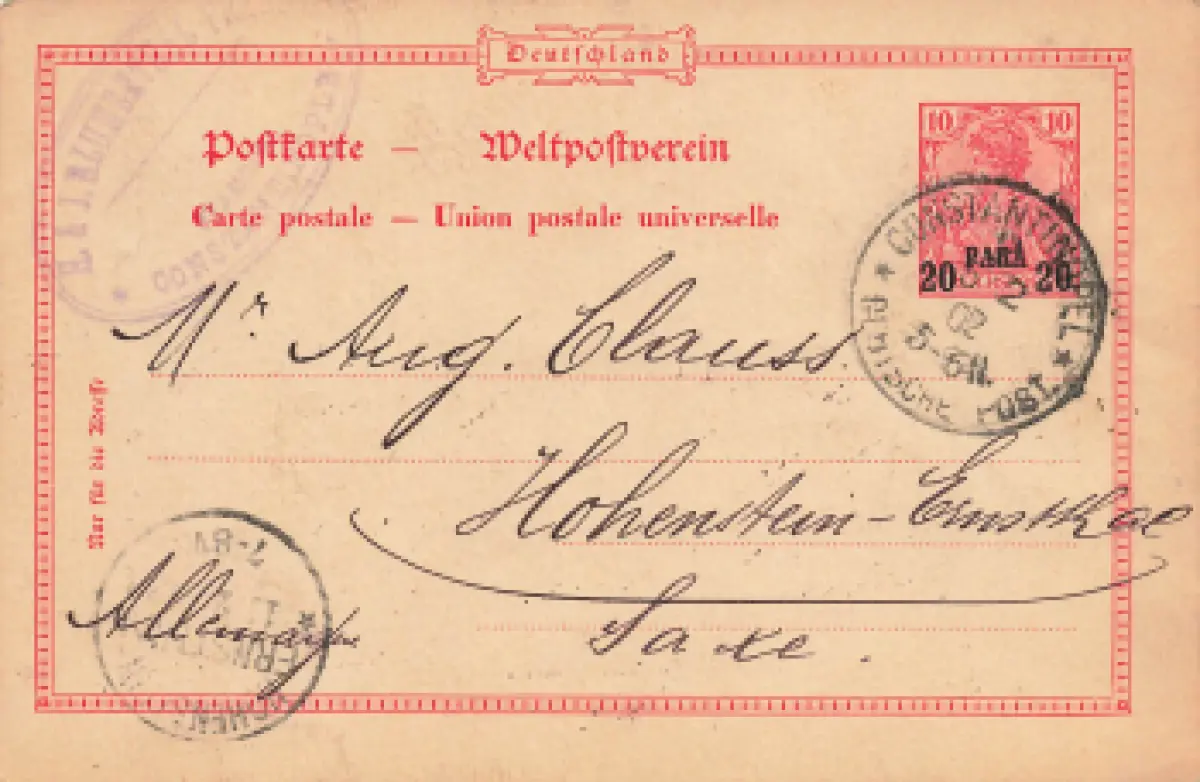 Deutschland
10 10
Postkarte — Weltpostverein
Carte postale — Union postale universelle
20 PARA 20
CONSTANTINOPEL
2
02
5-6N.
DEUTSCHE POST
CONST
Mr Aug. Clauss.
Hohenstein-Ernstthal
Saxe.
Allemagne
Nur für die Adresse
7-8V